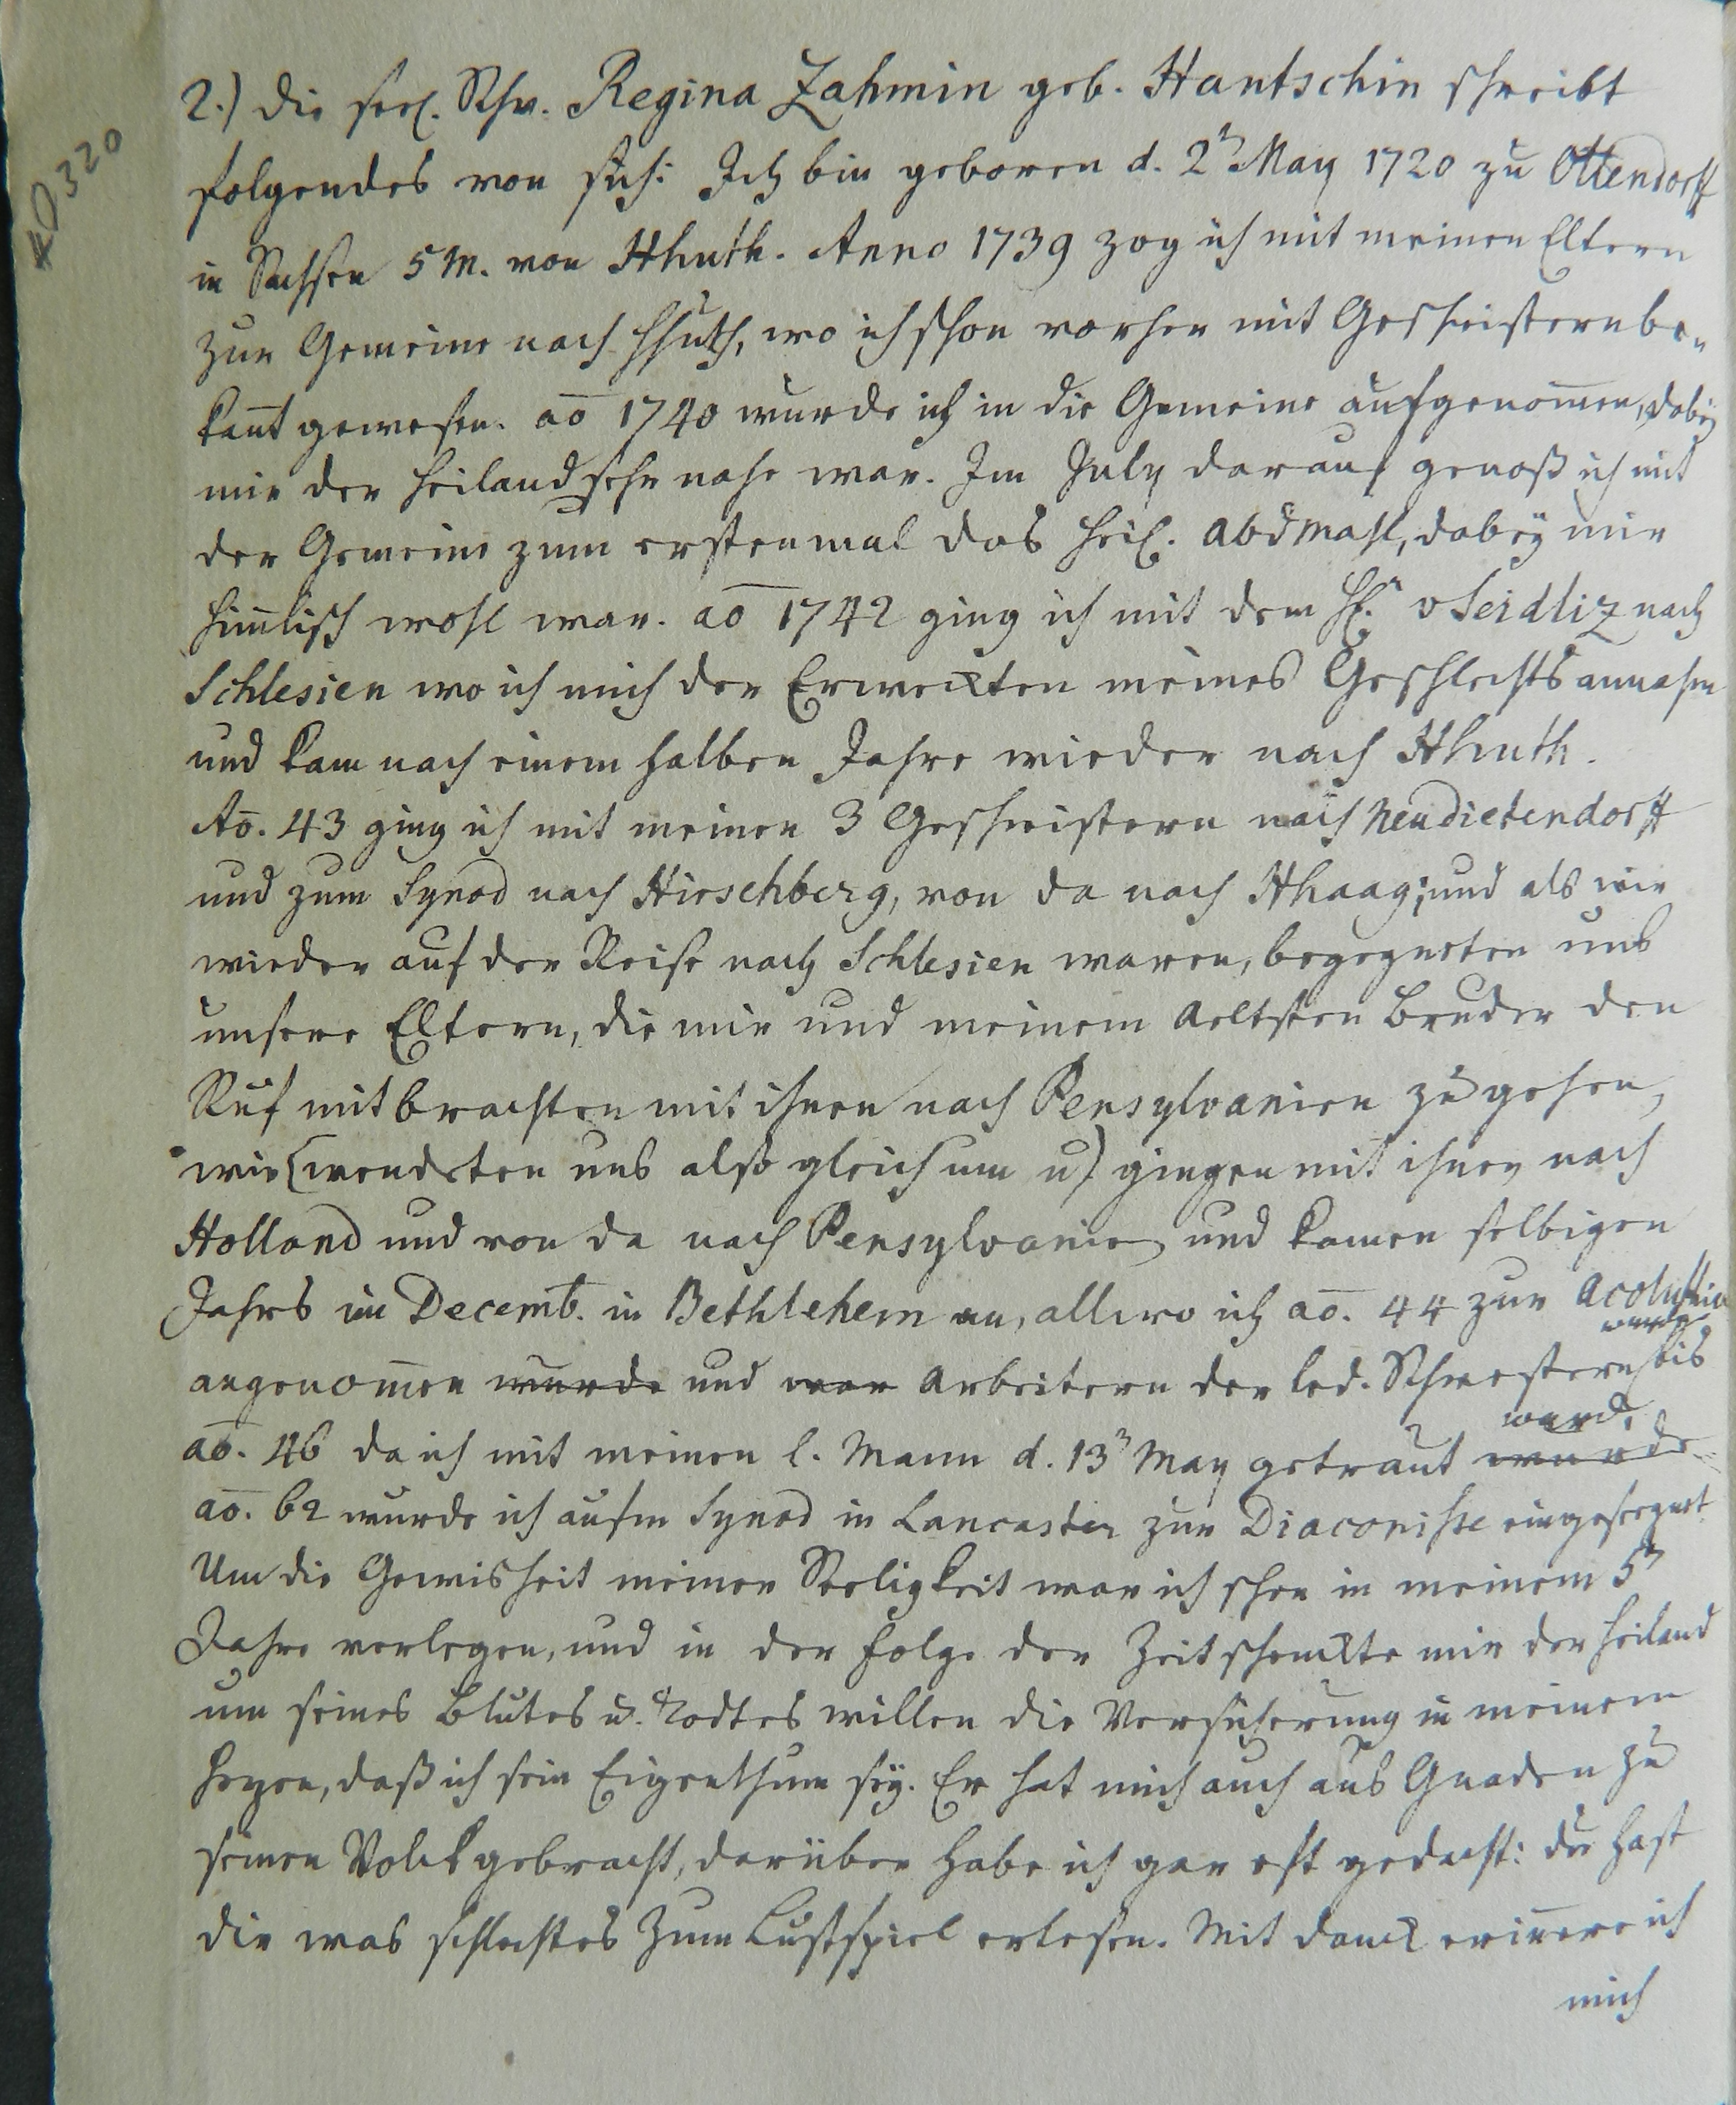 40320
2.) Die seel. Schw. Regina Zahmin geb. Hantschin schreibt
folgendes von sich: Ich bin geboren d. 2ᵗ May 1720 zu Ottendorff
in Sachsen 5 M. von Hhuth. Anno 1739 zog ich mit meinen Eltern
zur Gemeine nach Hhuth, wo ich schon vorher mit Geschwistern be-
kañt gewesen. aō 1740 wurde ich in die Gemeine aufgenom̄en, dabey
mir der Heiland sehr nahe war. Im July darauf genoß ich mit
der Gemeine zum erstenmal das heil. Abdmahl, dabey mir
him̄lisch wohl war. aō 1742 ging ich mit dem v Seidliz nach
Schlesien wo ich mich der Erweckten meines Geschlechts annahm
und kam nach einem halben Jahre wieder nach Hhuth.
Aō. 43 ging ich mit meinen 3 Geschwistern nach Neudietendorff
und zum Synod nach Hirschberg, von da nach Hhaag; und als wir
wieder auf der Reise nach Schlesien waren, begegneten uns
unsere Eltern, die mir und meinem aeltsten Bruder den
Ruf mitbrachten mit ihnen nach Pensylvanien zu gehen,
wir (wendeten uns also gleich um u) gingen mit ihnen nach
Holland und von da nach Pensylvanien und kamen selbigen
Jahrs im Decemb. in Bethlehem an, allwo ich aō. 44 zur Acoluthin
wurde
angenom̄en wurde und war Arbeitern der led. Schwestern bis
ward.
aō. 46 da ich mit meinen l. Mann d. 13ᵗ May getraut wurde
aō. 62 wurde ich aufm Synod in Lancaster zur Diaconisse eingesegnet.
Um die Gewisheit meiner Seeligkeit war ich schon in meinem 5ᵗ
Jahre verlegen, und in der Folge der Zeit schenckte mir der Heiland
um seines Blutes u. Todtes willen die Versicherung in meinem
Herzen, daß ich sein Eigenthum sey. Er hat mich auch aus Gnaden zu
seinen Volck gebracht, darüber habe ich gar oft gedacht: du hast
dir was schlechtes zum Lustspiel erlesen. Mit Danck erin̄ere ich
mich